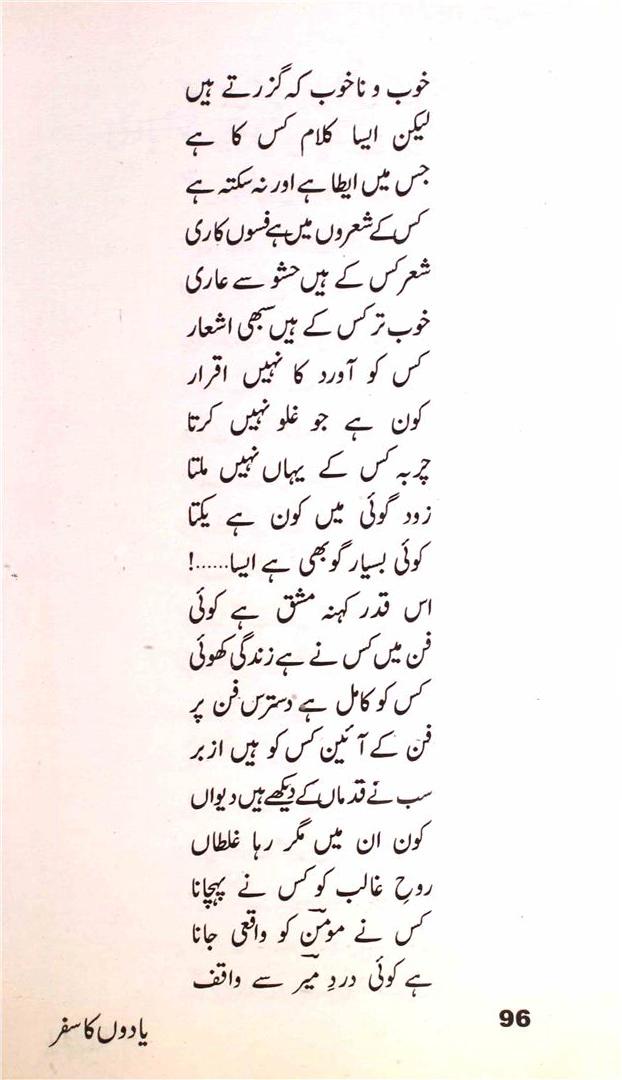 خوب و ناخوب کہ گزرتے ہیں
لیکن ایسا کلام کس کا ہے
جس میں ایطا ہے اور نہ سکتہ ہے
کس کے شعروں میں ہے فسوں کاری
شعر کس کے ہیں حشو سے عاری
خوب تر کس کے ہیں سبھی اشعار
کس کو آورد کا نہیں اقرار
کون ہے جو غلو نہیں کرتا
چربہ کس کے یہاں نہیں ملتا
زود گوئی میں کون ہے یکتا
کوئی بسیار گو بھی ہے ایسا......!
اس قدر کہنہ مشق ہے کوئی
فن میں کس نے ہے زندگی کھوئی
کس کو کامل ہے دسترس فن پر
فن کے آئین کس کو ہیں ازبر
سب نے قدماں کے دیکھے ہیں دیواں
کون ان میں مگر رہا غلطاں
روحِ غالب کو کس نے پہچانا
کس نے مومنؔ کو واقعی جانا
ہے کوئی دردِ میرؔ سے واقف
یادوں کا سفر
96